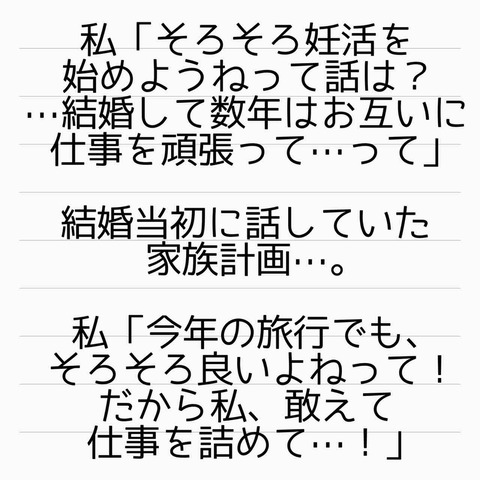 私「そろそろ妊活を
始めようねって話は？
…結婚して数年はお互いに
仕事を頑張って…って」
結婚当初に話していた
家族計画…。
私「今年の旅行でも、
そろそろ良いよねって！
だから私、敢えて
仕事を詰めて…！」